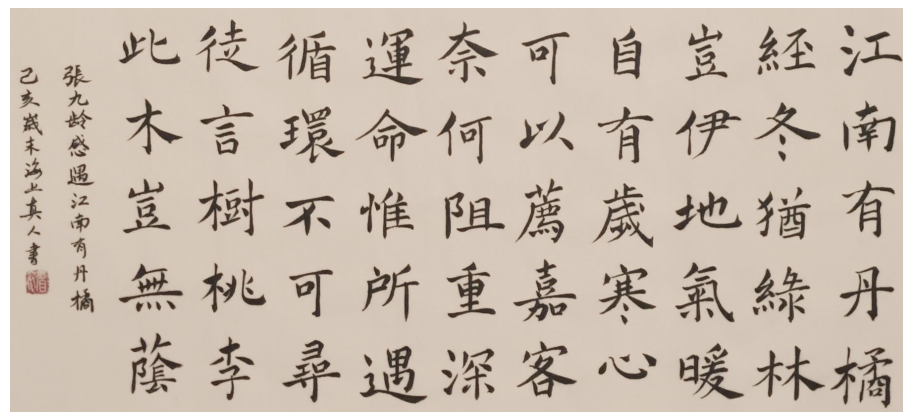 江南有丹橘
経冬猶綠林
豈伊地氣暖
自有歲寒心
可以薦嘉客
奈何阻重深
運命惟所遇
循環不可尋
徒言樹桃李
此木豈無蔭
張九龄感遇江南有丹橘
己亥歲末海上真人書